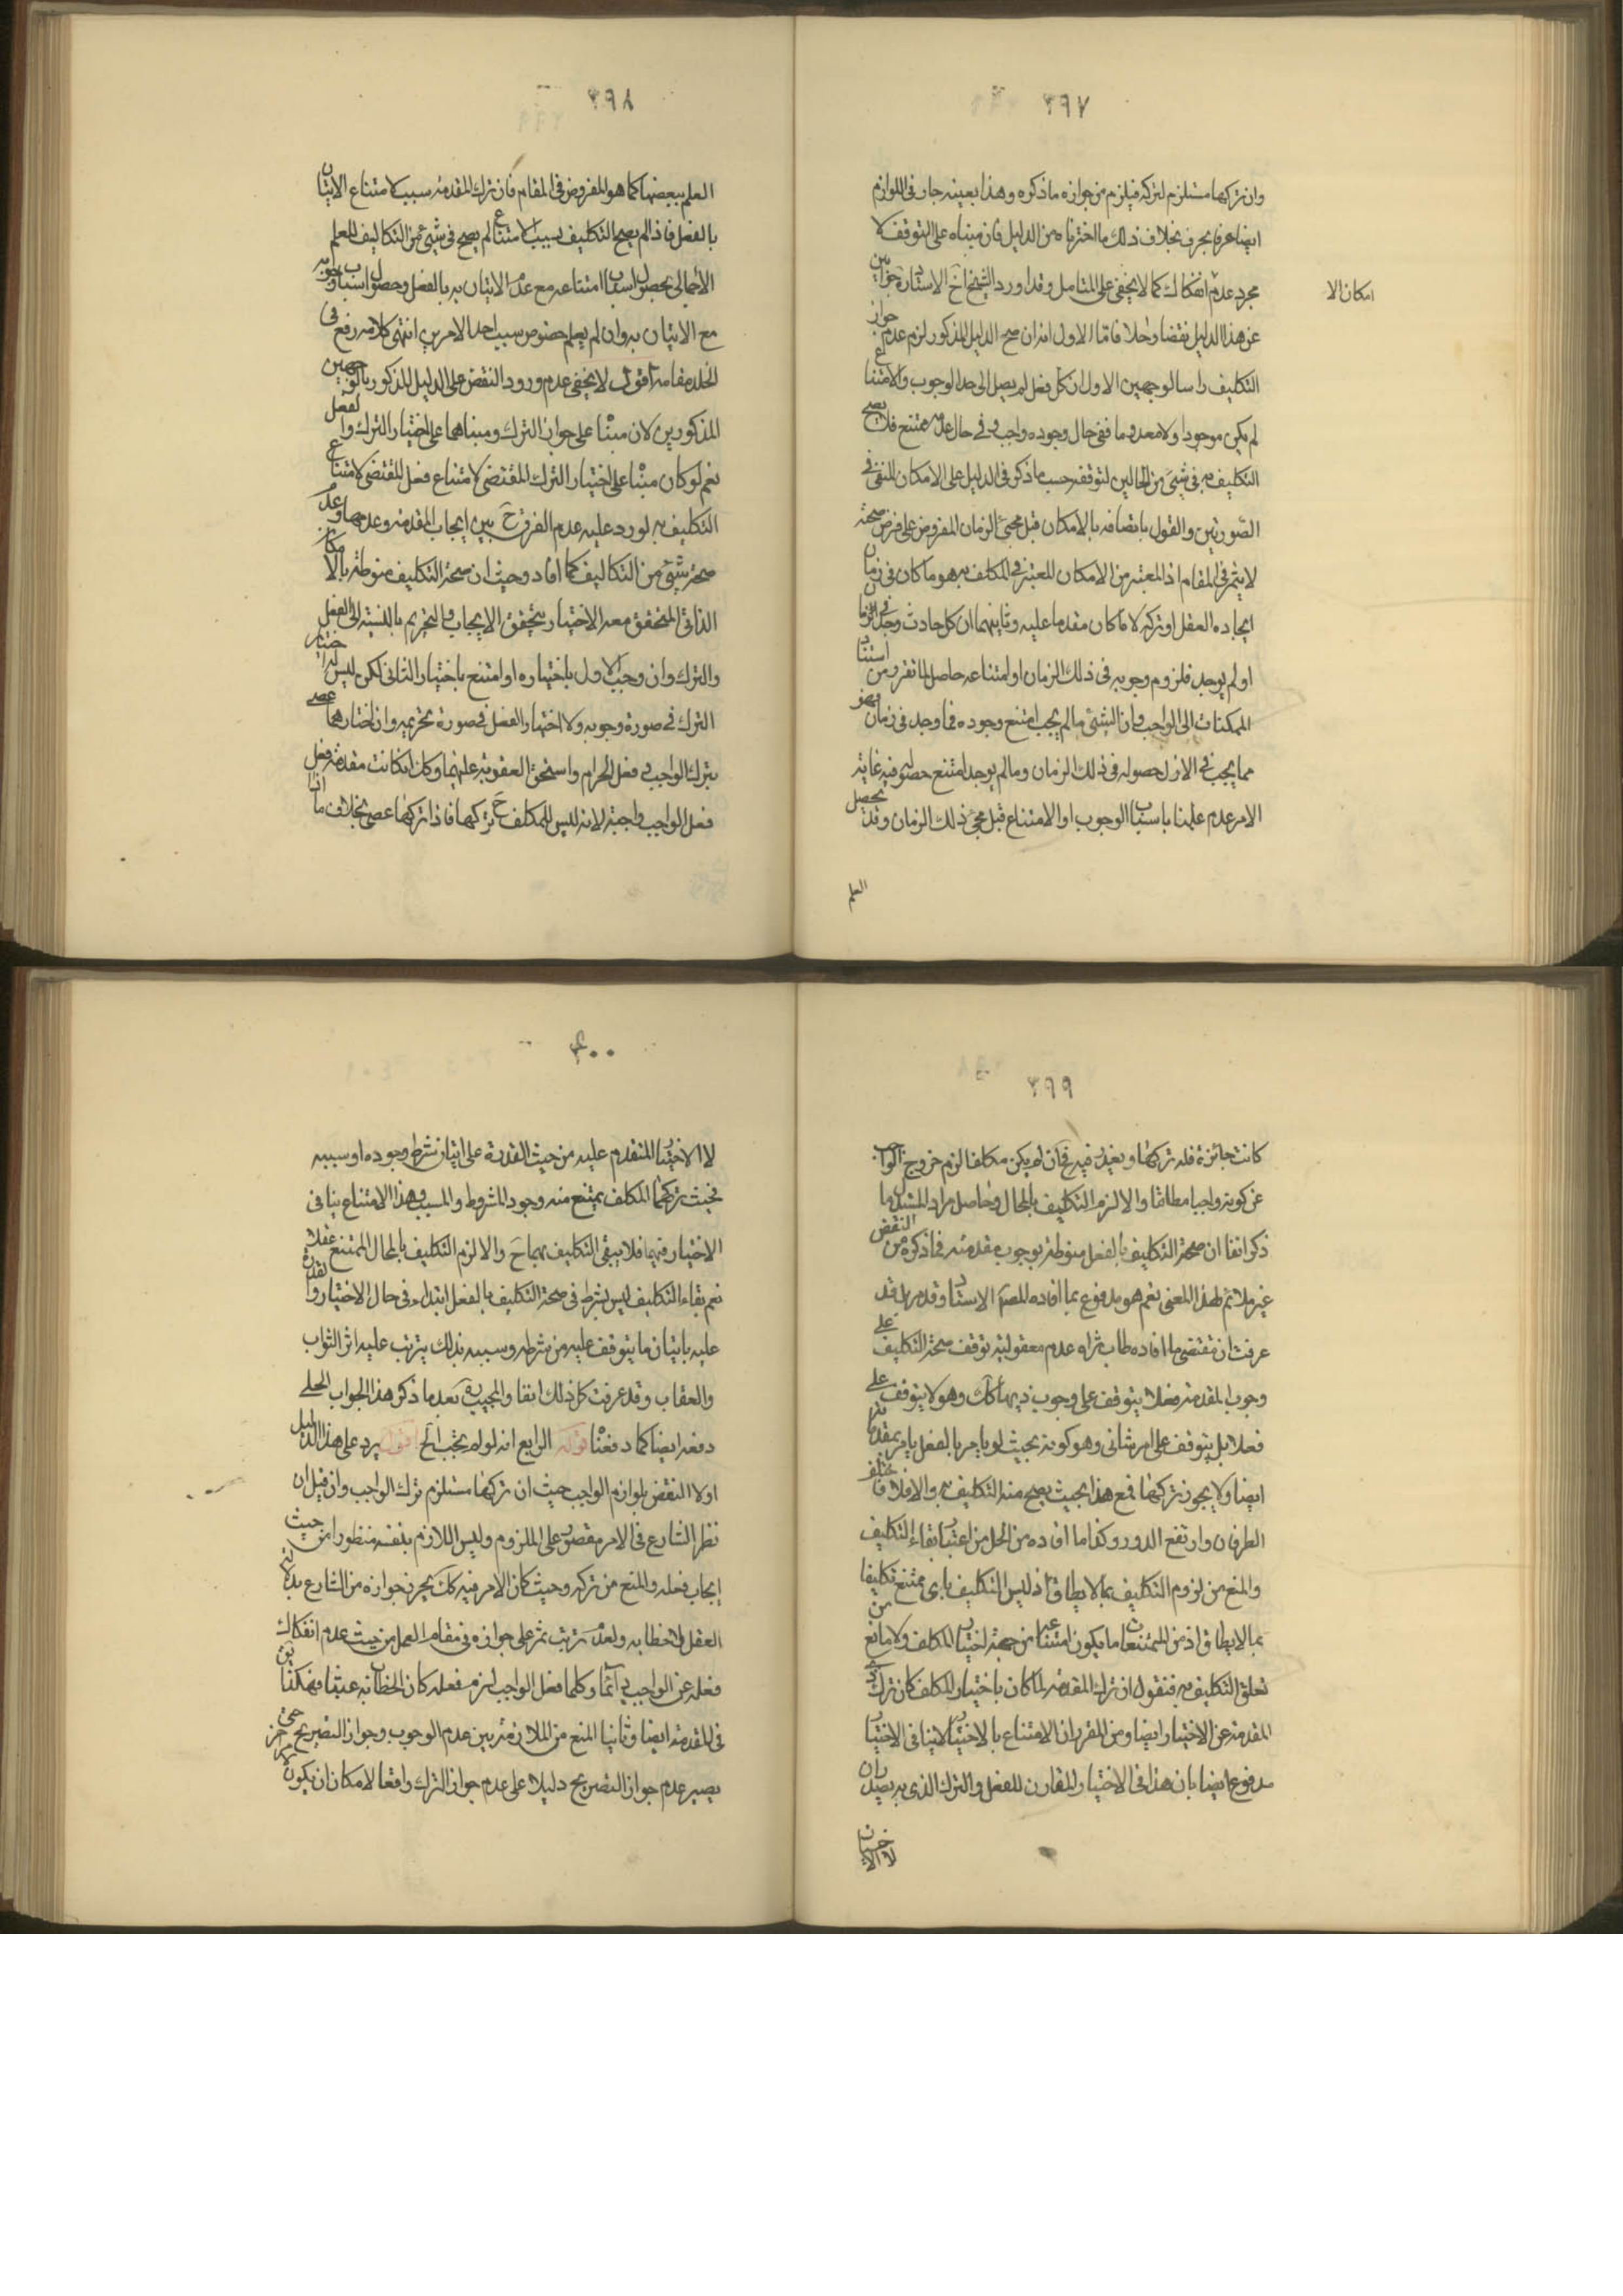 ٣٩٧
وان تركها مستلزم لتركه فيلزم من جوازه ما ذكره وهذا بعينه جار في اللوازم
ايضا عرفا بحرف بخلاف ذلك ما اخترناه من الدليل فان مبناه على التوقف لا
مجرد عدم انفكاك كما لا يخفى على المتامل وقد اورد الشيخ اخ الاستاد جوابين
امكان الا
عن هذا الدليل نقضا وحلا فاما الاول انه ان صح الدليل المذكور لزم عدم جواز
التكليف راسا لوجهين الاول ان كل فعل لم يصل الى حد الوجوب والامتناع
لم يكن موجودا ولا معدوما ففي حال وجوده واجب وفي حال عدمه ممتنع فلا يصح
التكليف به في شيء من الحالين لتوقفه حسب ما ذكر في الدليل على الامكان المنفي في
الصورتين والقول باتصافه بالامكان قبل مجيء الزمان المفروض على فرض صحته
لا يثمر في المقام اذ المعتبر من الامكان المعتبر في المكلف به هو ما كان في زمان
ايجاده الفعل او تركه لا ما كان مقدما عليه وثانيهما ان كل حادث وجد في الزمان
او لم يوجد فلزوم وجوبه في ذلك الزمان او امتناعه حاصل لما تقرر من استناد
الممكنات الى الواجب وان الشيء ما لم يجب امتنع وجوده فما وجد في زمان فهو
مما يجب في الازل حصوله في ذلك الزمان وما لم يوجد امتنع حصوله فيه غاية
الامر عدم علمنا باسباب الوجوب او الامتناع قبل مجيء ذلك الزمان وقد يحصل
العلم
٣٩٨
العلم ببعضها كما هو المفروض في المقام فان ترك المقدمة سبب لامتناع الاتيان
بالفعل فاذا لم يصح التكليف بسبب الامتناع لم يصح في شيء من التكاليف للعلم
الاجمالي بحصول اسباب امتناعه مع عدم الاتيان به بالفعل وحصول اسباب وجوبه
مع الاتيان به وان لم يعلم خصوص سبب احد الامرين انتهى كلامه رفع في
الخلد مقامه اقول لا يخفى عدم ورود النقض على الدليل المذكور بالوجهين
المذكورين لان مبناه على جواز الترك ومبناهما على اختيار الترك والفعل
نعم لو كان مبناه على اختيار الترك المقتضي لامتناع فعل المقتضي لامتناع
التكليف به لورد عليه عدم الفرق ح بين ايجاب المقدمة وعدمها وعدم
صحة شيء من التكاليف كما افاد وحيث ان صحة التكليف منوطة بالامكان
الذاتي المتحقق معه الاختيار يتحقق الايجاب والتحريم بالنسبة الى الفعل
والترك وان وجب الاول باختياره او امتنع باختيار الثاني لكن ليس له اختيار
الترك في صورة وجوبه ولا اختيار الفعل في صورة تحريمه وان اختارهما عصى
بترك الواجب وفعل الحرام واستحق العقوبة عليهما وكذا ان كانت مقدمة فعل
فعل الواجب واجبة لانه ليس للمكلف ح تركها فاذا تركها عصى بخلاف ما اذا
٣٩٩
كانت جائزة فله تركها وبعيد فيه فان لم يكن مكلفا لزم خروج الواجب
عن كونه واجبا مطلقا والا لزم التكليف بالمحال وحاصل مراد المستدل ما
ذكر انفا ان صحة التكليف بالفعل منوطة بوجوب مقدمته فما ذكره من النقض
غير ملائم لهذا المعنى نعم هو مدفوع بما افاده السيد الاستاد وقد مر بل قد
عرفت ان مقتضى ما افاده طاب ثراه عدم معقولية توقف صحة التكليف على
وجوب المقدمة فعلا يتوقف على وجوب ذيها كك وهو لا يتوقف على
فعلا بل يتوقف على امر شاني وهو كونه بحيث لو يامر بالفعل يامر بمقدماته
ايضا ولا يجوز تركها فمع هذا بحيث يصح منه التكليف به والا فلا فاختلف
الطرفان وارتفع الدور وكذا ما افاده من الحل من اعتبار بقاء التكليف
والمنع من لزوم التكليف بما لا يطاق اذ ليس التكليف باي ممتنع تكليفا
بما لا يطاق اذ من الممتنعات ما يكون امتناعه من جهة اختيار المكلف ولا مانع من
تعلق التكليف به فنقول ان ترك المقدمة لما كان باختيار المكلف كان ترك ذي
المقدمة عن الاختيار ايضا ومن المقرر ان الامتناع بالاختيار لا ينافي الاختيار
مدفوع ايضا بان هذا في الاختيار المقارن للفعل والترك الذي به يصدران
لا الاختيار
٤٠٠
لا الاختيار المتقدم عليه من حيث القدرة على اتيان شرط وجوده او سببه
فحيث تركهما المكلف يمتنع منه وجود المشروط والمسبب وهذا الامتناع ينافي
الاختيار فيهما فلا يبقى التكليف بهما ح والا لزم التكليف بالمحال الممتنع عقلا
نعم بقاء التكليف ليس بشرط في صحة التكليف بالفعل ابتداء في حال الاختيار والقدرة
عليه باتيان ما يتوقف عليه من شرطه وسببه بذلك يترتب عليه اثر الثواب
والعقاب وقد عرفت كل ذلك انفا والمجيب بعد ما ذكر هذا الجواب الحلي
دفعه ايضا كما دفعنا قوله الرابع انه لو لم يجب الخ اقول يرد على هذا الدليل
اولا النقض بلوازم الواجب حيث ان تركها مستلزم ترك الواجب وان قيل ان
نظر الشارع في الامر مقصور على الملزوم وليس اللازم بنفسه منظورا من حيث
ايجاب فعله والمنع من تركه وحيث كان الامر فيه كك يجري جوازه من الشارع بدلالة
العقل لا خطابه ولعدم ترتب ثمر على جوازه في مقام العمل من حيث عدم انفكاك
فعله عن الواجب دائما وكلما فعل الواجب لزم فعله كان الخطاب به عبثا فهكذا يق
في المقدمة ايضا وثانيا المنع من الملازمة بين عدم الوجوب وجواز التصريح حتى
يصير عدم جواز التصريح دليلا على عدم جواز الترك واقعا لامكان ان يكون